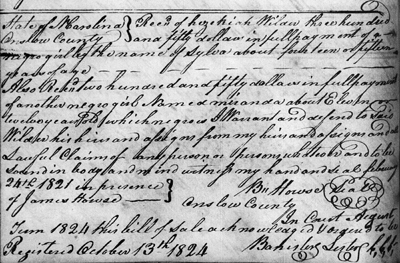 State of N Carolina } Recd of Hezekiah Wilder three hundred
Onslow County } and fifty dollars in full payment of a
negro girl by the name of Sylva about fourteen or fifteen
years of age
Also Recd two hundred and fifty dollars in full payment
of another negro girl Named miranda about Eleven
twelve years old which negroes I Warrant and defend to Said
Wilder his heirs and assigns from my heirs and assigns and all
Lawful Claims of any person or persons whatsoever and to be
sound in body and mind witness my hand and seal February
24th 1821 in presence
of James Howard } B Howard Seal
Onslow County
In Court August
Term 1824 this bill of sale acknowledged & ordered to be
Registered October 13th 1824 Banister Lester